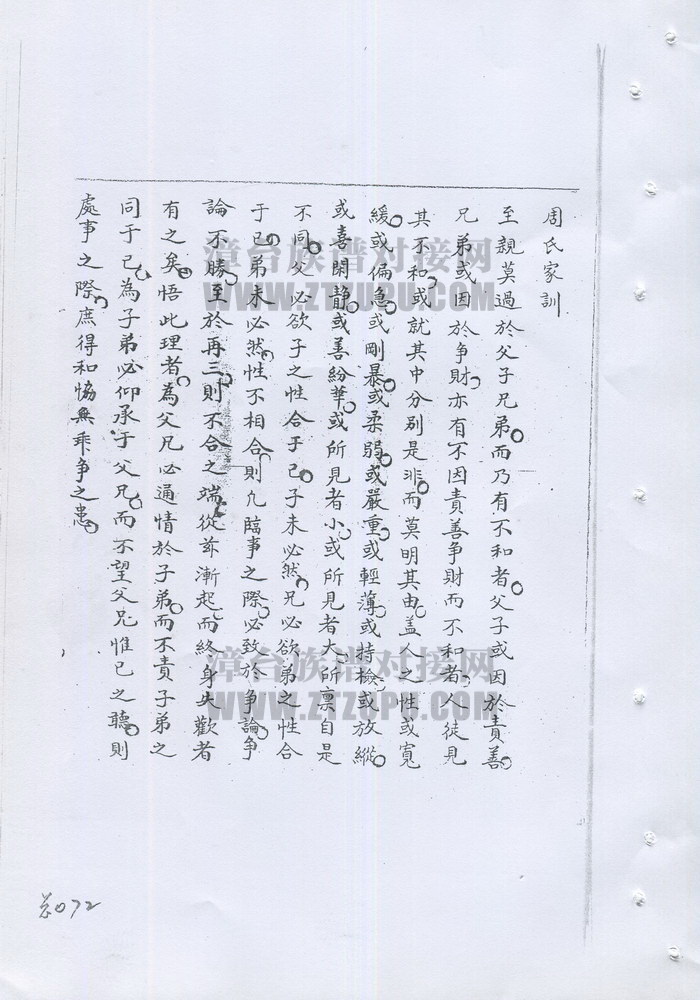 周氏家訓
至親莫過於父子兄弟而乃有不和者父子或因於責善
兄弟或因於争財亦有不因責善争財而不和者人徒見
其不和或就其中分别是非而莫明其由盖人之性或寬
緩或偏急或剛暴或柔弱或嚴重或輕薄或持檢或放縱
或喜閑静或善紛華或所見者小或所見者大所禀自是
不同父必欲子之性合于己子未必然兄必欲弟之性合
于己弟未必然性不相合則凢臨事之際必致於争論争
論不勝至於再三則不合之端從茲漸起而終身失歡者
有之矣悟此理者為父兄必通情於子弟而不責子弟之
同于己為子弟必仰承于父兄而不望父兄惟己之聽則
處事之際庶得和恊無乖争之患
漳台族谱对接网
WWW.ZTZUPU.COM
漳台族谱对接网
WWW.ZTZUPU.COM
072